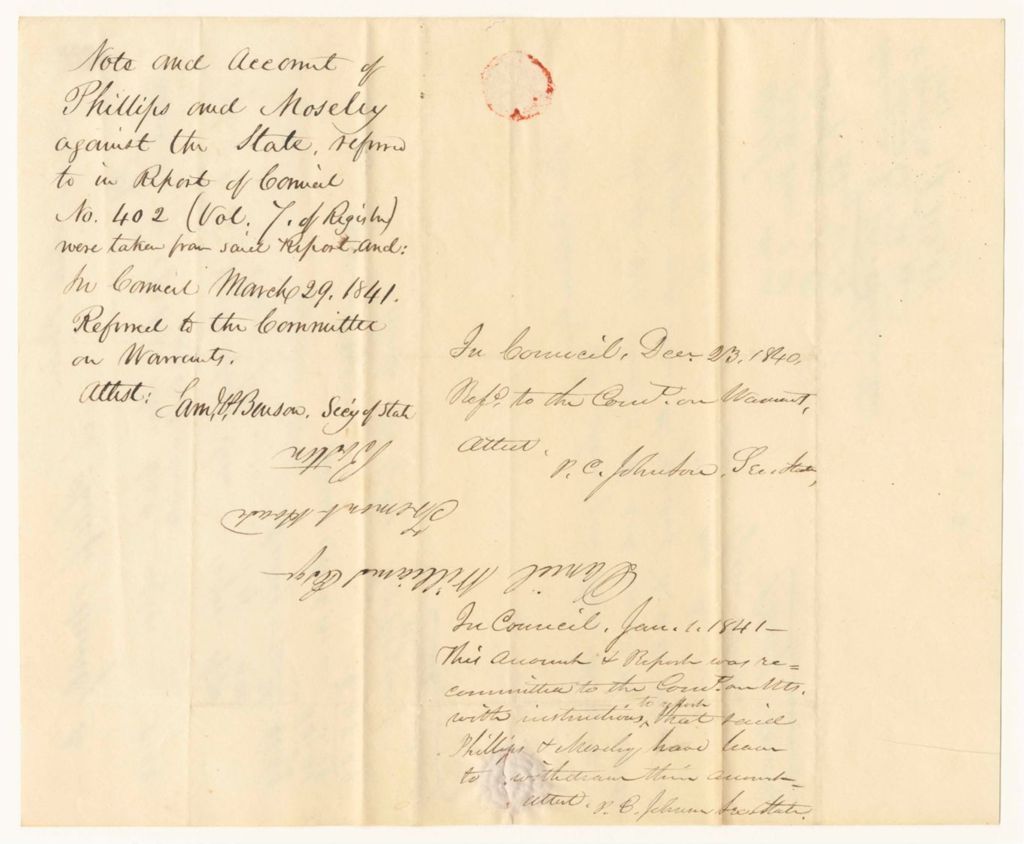 Note and Account of
Phillips and Moseley
against the State, referred
to in Report of Council
No. 402 (Vol. 7. of Register)
were taken from said Report, and:
In Council March 29. 1841.
Referred to the Committee
on Warrants.
Attest:
Saml. P. Benson, Secy of State
In Council, Decr. 23, 1840,
Refd. to the Comee. on Warrants,
Attest,
P. C. Johnson, Sec. State,
Daniel Williams Esqr
Tremont House
Boston
In Council, Jan. 1. 1841—
This Account & Report was re=
committed to the Comee. on Wts.
with instructions, to report that said
Phillips & Moseley have leave
to withdraw their account—
Attest. P. C. Johnson Sec. State.